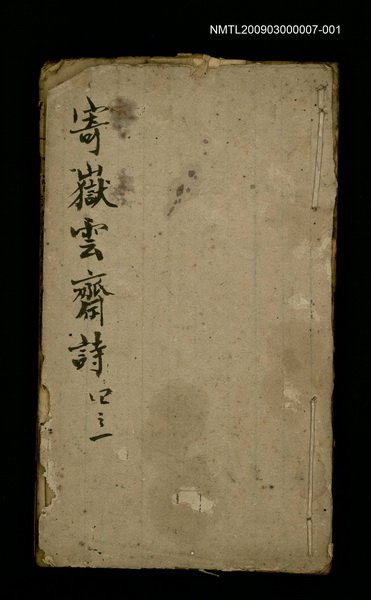 NMTL200903000007-001
寄嶽雲齋詩 四之一